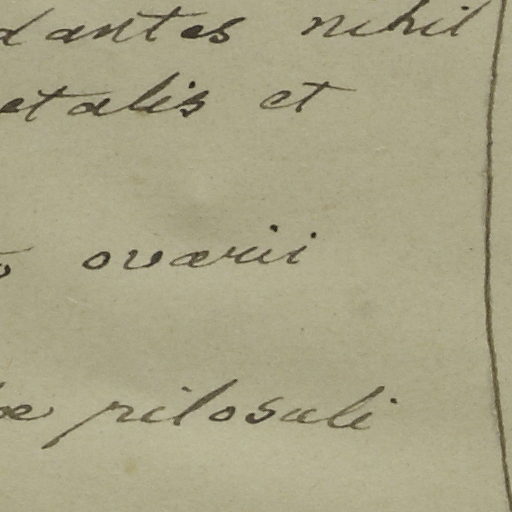 dantes nihil
etalis et
ovarii
pilosuli